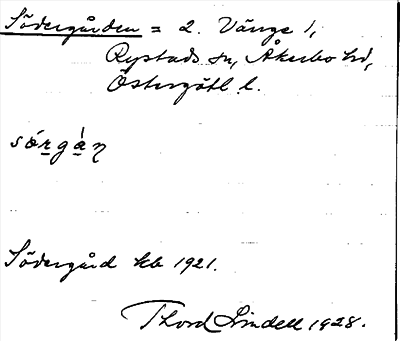 Södergården = 2. Vänge 1,
Rystads sn, Åkerbo hd,
Östergötl. l.
sǿrgàn
Södergård kb 1921.
Thord Lindell 1928.